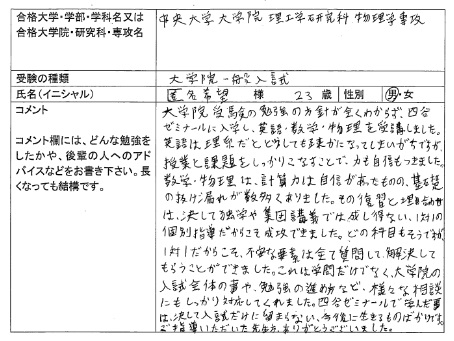 合格大学・学部・学科名又は
合格大学院・研究科・専攻名
中央大学大学院 理工学研究科 物理学専攻
受験の種類
大学院一般入試
氏名（イニシャル）
匿名希望 様 23 歳 性別 男・女
コメント
コメント欄には、どんな勉強を
したかや、後輩の人へのアド
バイスなどをお書き下さい。長
くなっても結構です。
大学院受験の勉強の方針が全くわからず、四谷
ゼミナールに入学し、英語・数学・物理を受講しました。
英語は理系だとどうしても疎かになってしまいがちですが、
授業と課題をしっかりこなすことで、力も自信もつきました。
数学・物理は、計算力は自信があったものの、基礎
の抜け漏れが数多くありました。その復習と埋め合わせ
は、決して独学や集団講義では成し得ない、1対1の
個別指導だからこそ成功できました。どの科目もそうですが、
1対1だからこそ、不安な要素は全て質問して、解決して
もらうことができました。これは学問だけでなく、大学院の
入試全体の事や、勉強の進め方など、様々な相談
にもしっかり対応してくれました。四谷ゼミナールで学んだ事
は、決して入試だけに留まらない、今後に生きるものばかりです。
ご指導いただいた先生方、ありがとうございました。